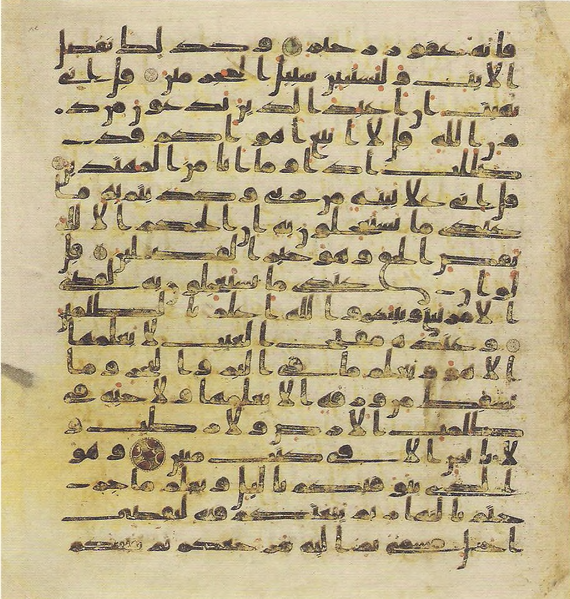 فانه غفور رحيم وكذلك نفصل
الايت ولتستبين سبيل المجرمين قل اني
نهيت ان اعبد الذين تدعون من د
ون الله قل لا اتبع اهواكم قد
ضللت اذا وما انا من المهتدين
قل اني على بينة من ربي وكذبتم به ما
عندي ما تستعجلون به ان الحكم الا لله
يقص الحق وهو خير الفصلين قل
لو ان عندي ما تستعجلون به لقضي
الامر بيني وبينكم والله اعلم بالظلمين
وعنده مفتح الغيب لا يعلمها
الا هو ويعلم ما في البر والبحر وما
تسقط من ورقة الا يعلمها ولا حبة في
ظلمت الارض ولا رطب و
لا يابس الا في كتب مبين وهو
الذي يتوفكم باليل ويعلم ما جر
حتم بالنهار ثم يبعثكم فيه ليقضى
اجل مسمى ثم اليه مرجعكم ثم ينبئكم